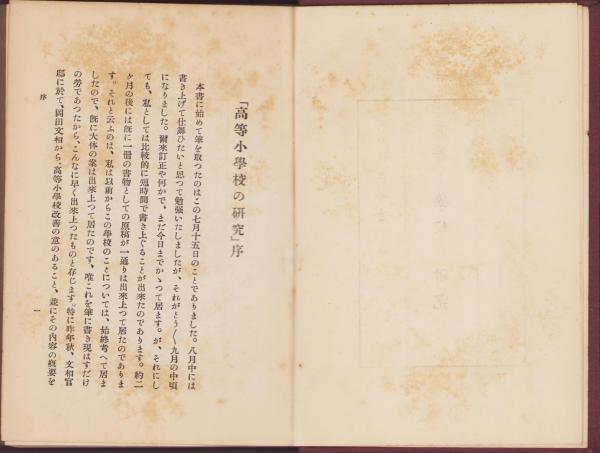 「高等小學校の研究」序
本書に始めて筆を取つたのはこの七月十五日のことでありました。八月中には
書き上げて仕舞ひたいと思つて勉强いたしましたが、それがとう〱九月の中頃
になりました。爾來訂正や何かで、まだ今日までかゝつて居ます。が、それにし
ても、私としては比較的に短時間で書き上ぐることが出來たのであります。約二
ケ月の後には旣に一冊の書物としての原稿が一通りは出來上つて居たのでありま
す。それと云ふのは、私は以前からこの學校のことについては、始終考へて居ま
したので、旣に大体の案は出來上つて居たのです、唯これを筆に書き現はすだけ
の勞であつたから、こんなに早く出來上つたものと存じます。特に昨年秋、文相官
邸に於て、岡田文相から、高等小學校改善の意のあること、並にその內容の槪要を
序
一